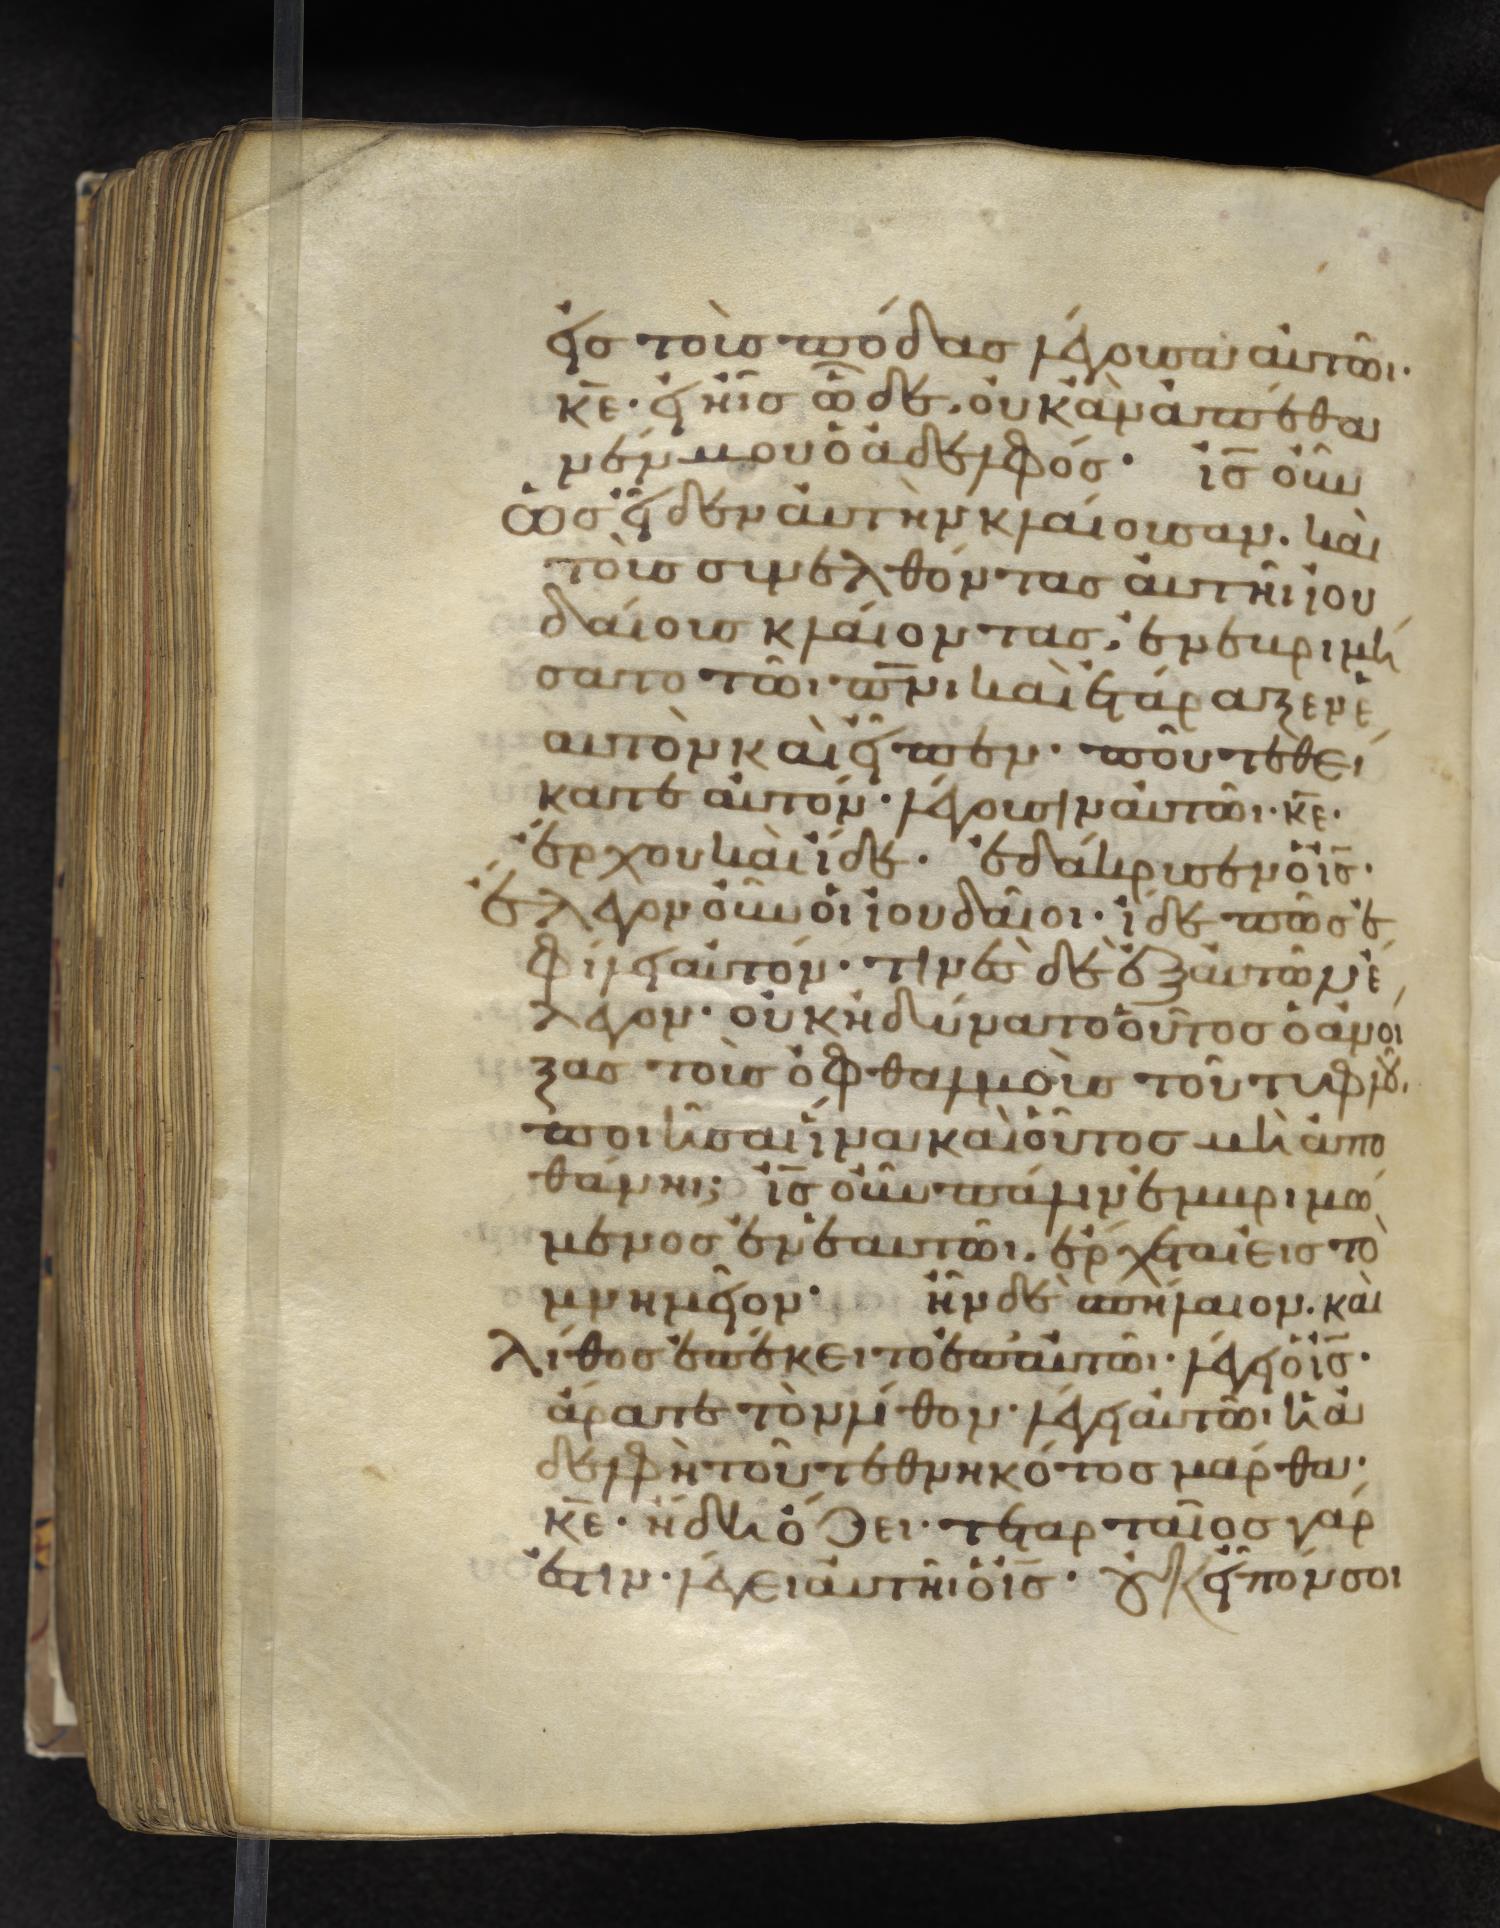 εἰς τοὺς πόδας λέγουσα αὐτῶι·
κ̅ε̅· εἰ ἦς ὧδε, οὐκ ἂν ἀπέθα
νέν μου ὁ ἀδελφός· ἰ̅ς̅ οὖν
ὡς εἶδεν αὐτὴν κλαίουσαν. καὶ
τοὺς συνελθόντας αὐτῆι ἰου
δαίους κλαίοντας, ἐνεβριμή
σατο τῶι π̅ν̅ι καὶ ἐτάραξεν ἑ
αυτὸν καὶ εἶπεν· ποῦ τεθεί
κατε αὐτόν· λέγουσιν αὐτῶι· κ̅ε̅·
ἔρχου καὶ ἴδε· ἐδάκρυσεν ὁ ἰ̅ς̅·
ἔλεγον οὖν οἱ ἰουδαῖοι· ἴδε πῶς ἐ
φίλει αὐτόν· τινὲς δὲ ἐξ αὐτῶν ἔ
λεγον· οὐκ ἠδύνατο οὗτος ὁ ἀνοί
ξας τοὺς ὀφθαλμοὺς τοῦ τυφλοῦ,
ποιῆσαι ἵνα καὶ οὗτος μὴ ἀπο
θάνηι; ἰ̅ς̅ οὖν πάλιν ἐμβριμώ
μενος ἐν ἑαυτῶι. ἔρχεται εἰς τὸ
μνημεῖον· ἦν δὲ σπήλαιον. καὶ
λίθος ἐπέκειτο ἐπ' αὐτῶι· λέγει ὁ ἰ̅ς̅·
ἄρατε τὸν λίθον· λέγει αὐτῶι ἡ ἀ
δελφὴ τοῦ τεθνηκότος μάρθα·
κ̅ε̅· ἤδη ὄζει· τεταρταῖος γάρ
ἐστιν· λέγει αὐτῆι ὁ ἰ̅ς̅· οὐκ εἶπόν σοι